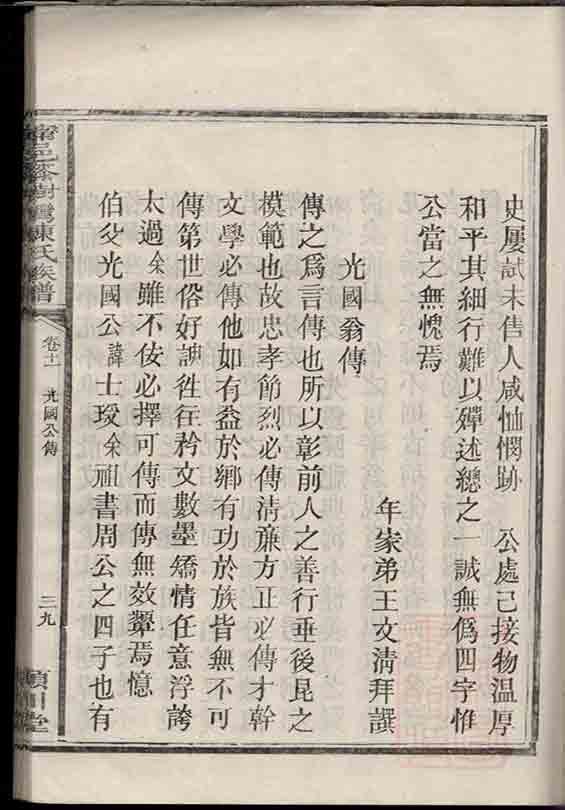 史屢試未售人咸恤憫跡　公處己接物温厚
和平其細行難以殫述總之一誠無僞四字惟
公當之無愧焉
年家弟王文清拜譔
光國翁傳
傳之爲言傳也所以彰前人之善行垂後昆之
模範也故忠孝節烈必傳清廉方正必傳才幹
文學必傳他如有益於鄉有功於族皆無不可
傳第世俗好諛徃徃矜文數墨矯情任意浮誇
太過余雖不佞必擇可傳而傳無效顰焉憶
伯父光國公諱士珱余祖書周公之四子也有
陳氏族譜
卷十一
光國公傳
三九
潁川堂